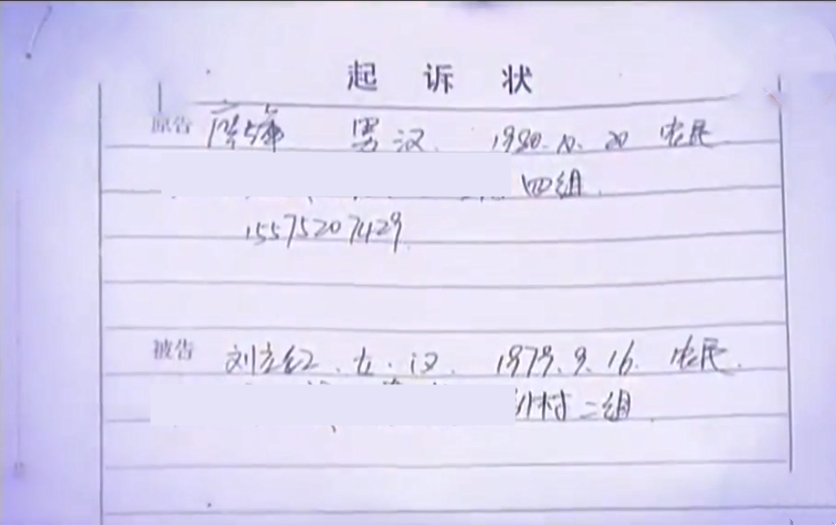 起诉状
原告 男 汉. 1980.10.20 农民
四组.
15575207429
被告 刘立红.女.汉. 1979.9.16. 农民.
村二组